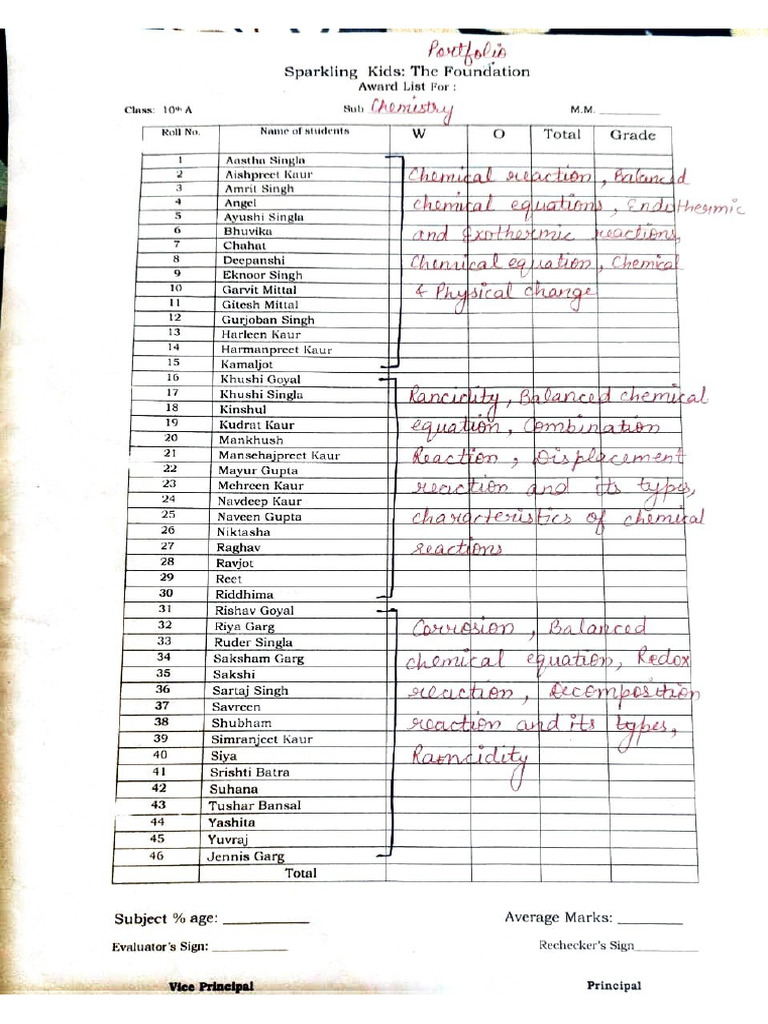 Portfolio
Sparkling Kids: The Foundation
Award List For :
Class: 10th A Sub Chemistry M.M. ________
Roll No. Name of students W O Total Grade
1 Aastha Singla
2 Aishpreet Kaur Chemical reaction, Balanced
3 Amrit Singh
4 Angel chemical equations, Endothermic
5 Ayushi Singla
6 Bhuvika and Exothermic reactions,
7 Chahat
8 Deepanshi Chemical equation, Chemical
9 Eknoor Singh
10 Garvit Mittal & Physical change
11 Gitesh Mittal
12 Gurjoban Singh
13 Harleen Kaur
14 Harmanpreet Kaur
15 Kamaljot
16 Khushi Goyal
17 Khushi Singla Rancidity, Balanced chemical
18 Kinshul
19 Kudrat Kaur equation, Combination
20 Mankhush
21 Mansehajpreet Kaur Reaction, Displacement
22 Mayur Gupta
23 Mehreen Kaur reaction and its types,
24 Navdeep Kaur
25 Naveen Gupta characteristics of chemical
26 Niktasha
27 Raghav reactions
28 Ravjot
29 Reet
30 Riddhima
31 Rishav Goyal
32 Riya Garg Corrosion, Balanced
33 Ruder Singla
34 Saksham Garg chemical equation, Redox
35 Sakshi
36 Sartaj Singh reaction, Decomposition
37 Savreen
38 Shubham reaction and its types,
39 Simranjeet Kaur
40 Siya Rancidity
41 Srishti Batra
42 Suhana
43 Tushar Bansal
44 Yashita
45 Yuvraj
46 Jennis Garg
Total
Subject % age: __________ Average Marks: ________
Evaluator's Sign: __________ Rechecker's Sign__________
Vice Principal Principal